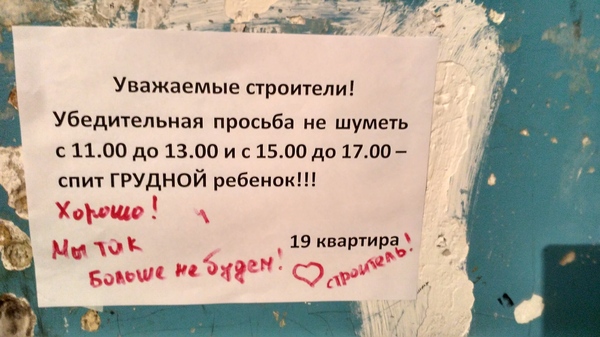 Уважаемые строители!
Убедительная просьба не шуметь
с 11.00 до 13.00 и с 15.00 до 17.00 –
спит ГРУДНОЙ ребенок!!!
Хорошо!
19 квартира
Мы так
больше не будем!
строитель!